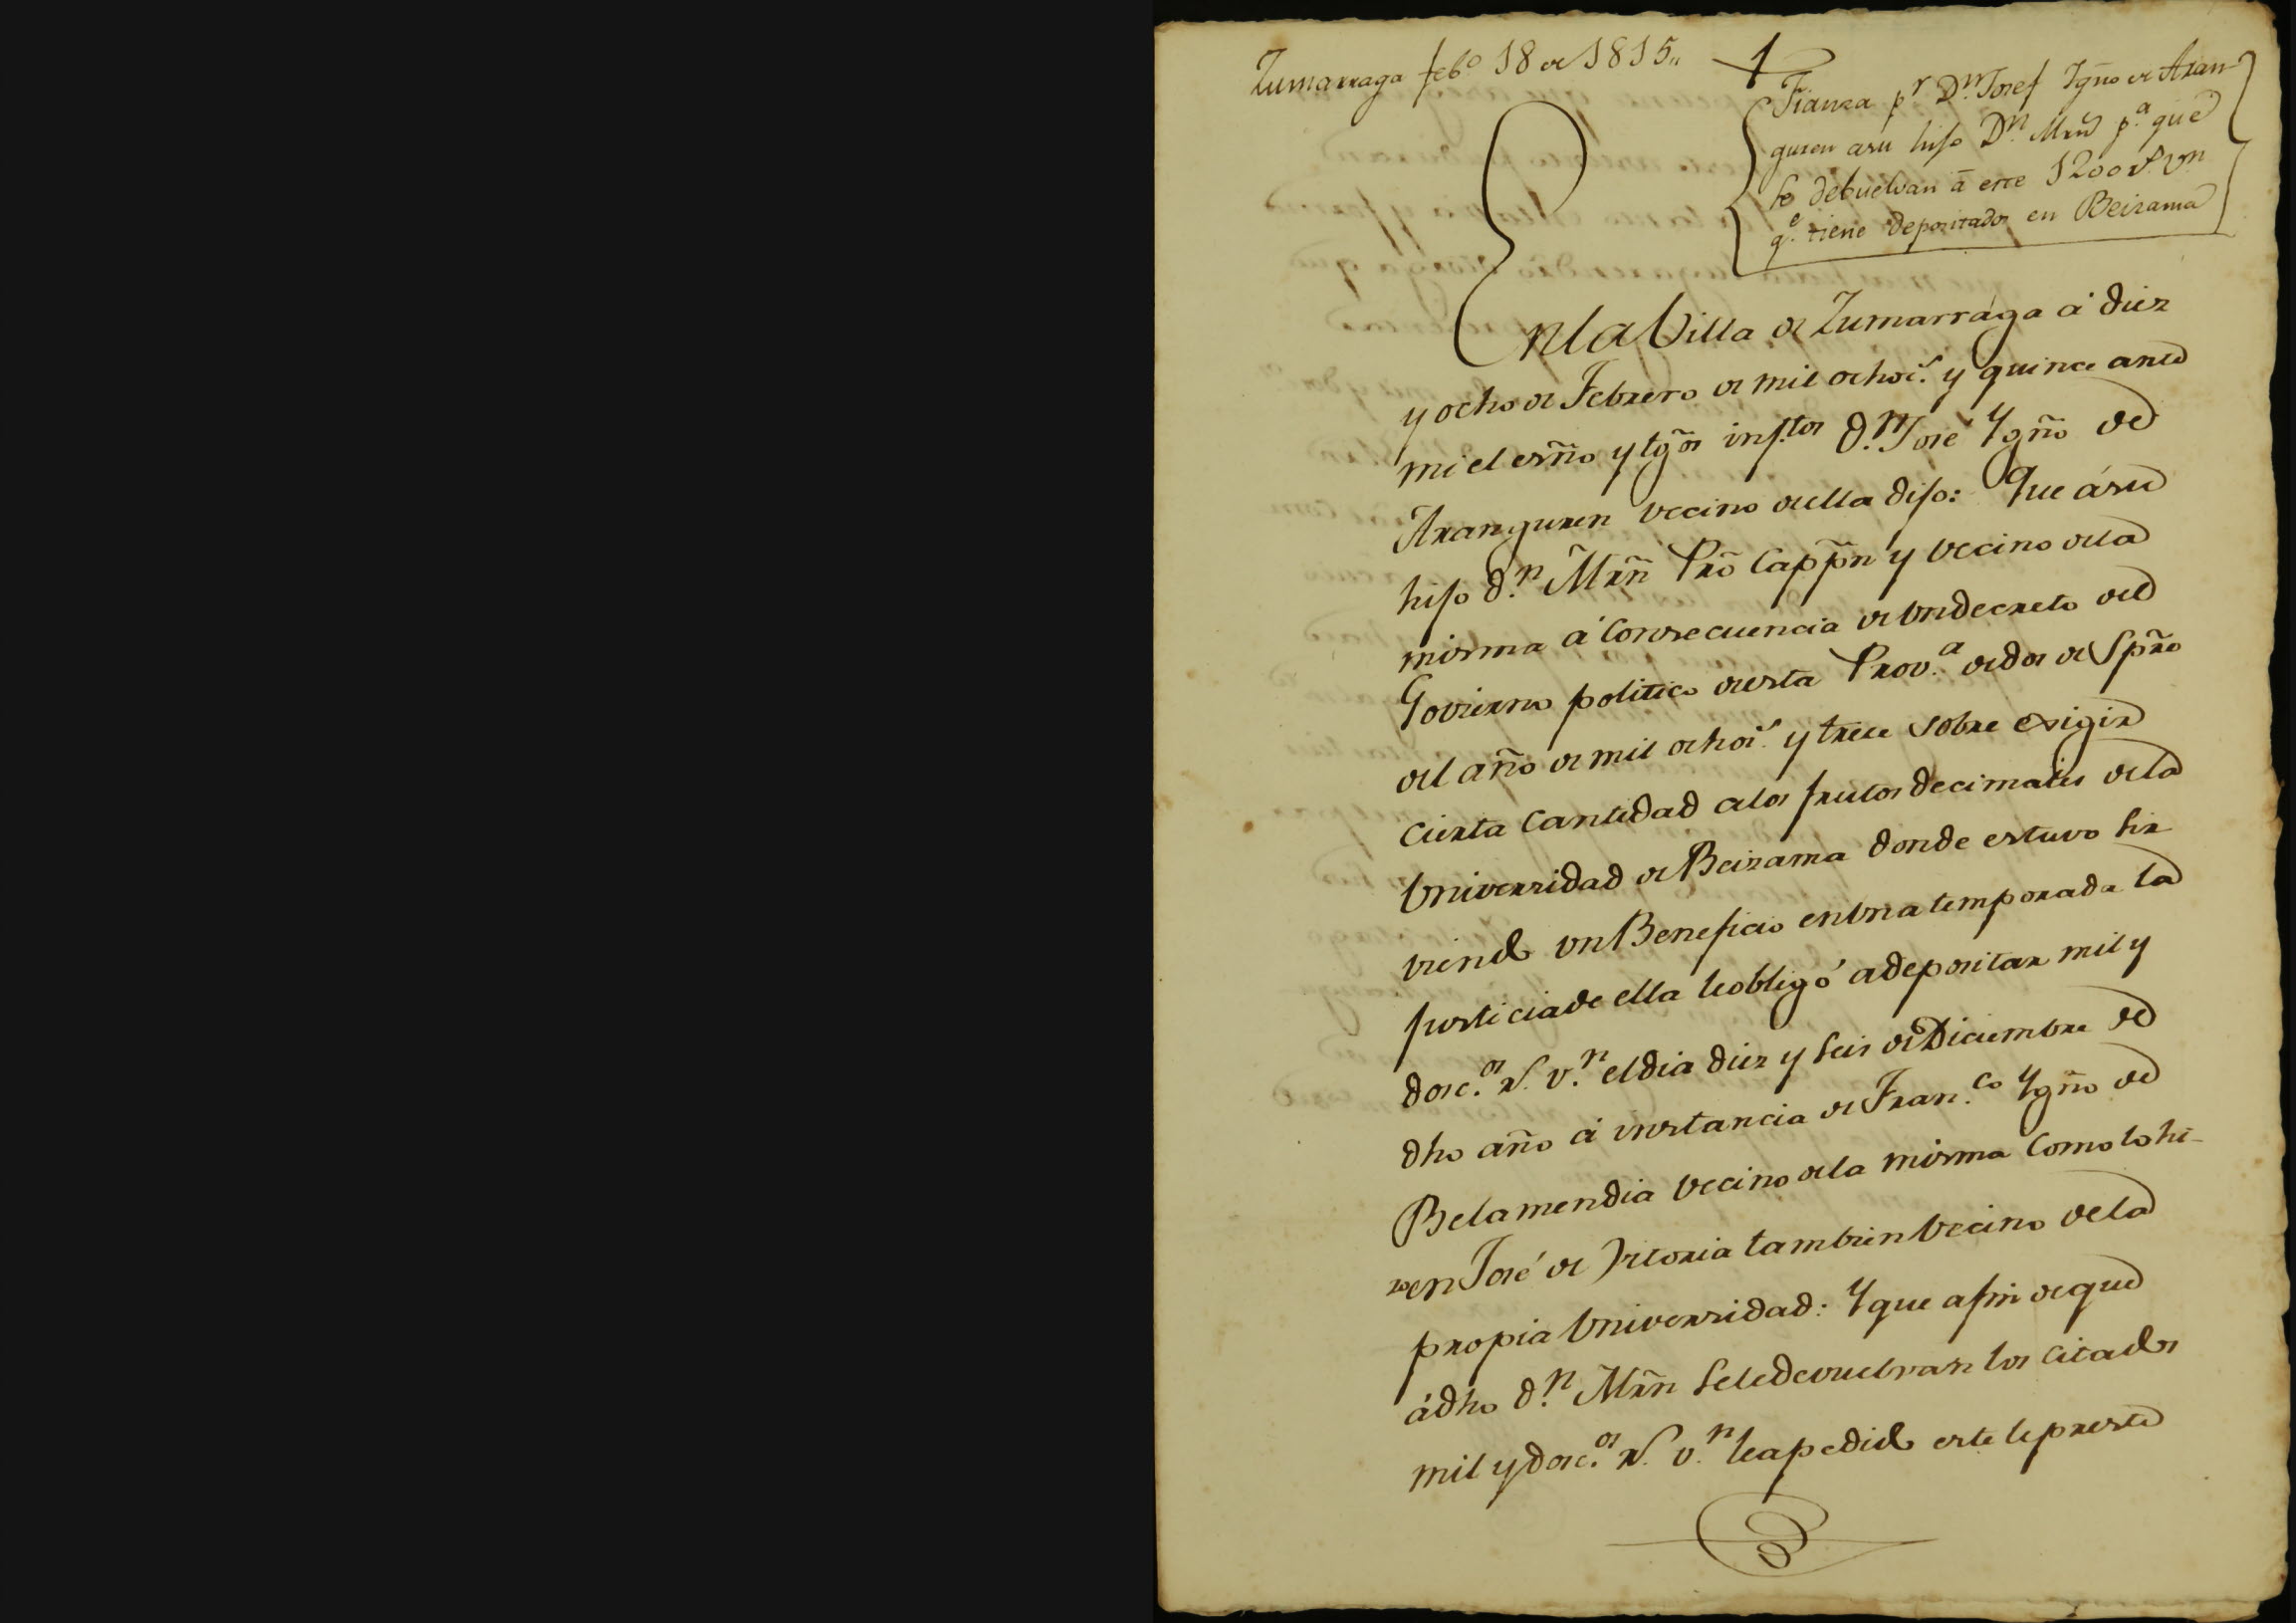 Zumarraga feb.o 18 de 1815,,
Fianza p.r D.n Josef Ygño de Aran-
guren a su hijo D.n Mrñ p.a que
se debuelvan â este 1200 r.s v.n
q.e tiene depositados en Beizama
En la Villa de Zumarraga á diez
y ocho de Febrero de mil ochoc.s y quince ante
mi el esñno y tgõs insf.tos d.n José Ygño de
Aranguren vecino de ella dijo: Que á su
hijo d.n Mrñ Prõ Cappñ y vecino de la
misma á consecuencia de un decreto del
Govierno politico de esta Prov.a de dos de Spr̃e
del año de mil ochoc.s y trece sobre exigir
cierta cantidad de los frutos decimales de la
Universidad de Beizama donde estuvo sir
viendo un Beneficio en una temporada la
justicia de ella le obligó a depositar mil y
dosc.os r.s v.n el dia diez y seis de Diciembre de
dho año á instancia de Fran.co Ygño de
Belamendia vecino de la misma como lo hi-
zo en José de Vitoria tambien vecino de la
propia Universidad: Y que a fin de que
á dho d.n Mrñ se le devuelvan los citados
mil y dosc.os r.s v.n le a pedido este le preste